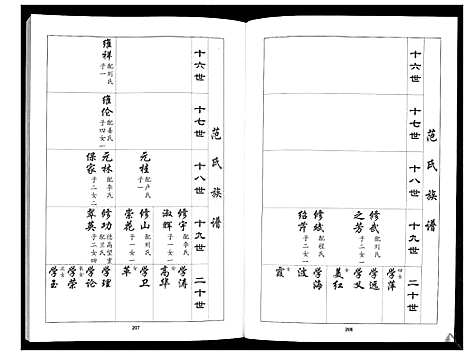 范氏族谱
十六世
十七世
十八世
十九世
二十世
维祥 配刘氏 子一
维伦 配姜氏 子四女一
元桂 配卢氏 子一
元林 配李氏
保家 子二女二
修宇 配李氏
淑辉 子二女一
修山 配刘氏
崇花 子一女一
修功
翠英 子二女四
学涛
高华
学卫
革
学理
学论
学荣
学玉
207
范氏族谱
十六世
十七世
十八世
十九世
二十世
修武 配刘氏
之芳 子二女二
修斌 配程氏
绍芹 子二女一
学萍
学远
学义
美红
学海
波
霞
208